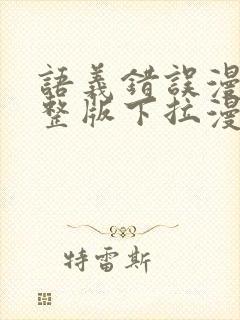 語義錯誤漫
整版下拉漫
特雷斯